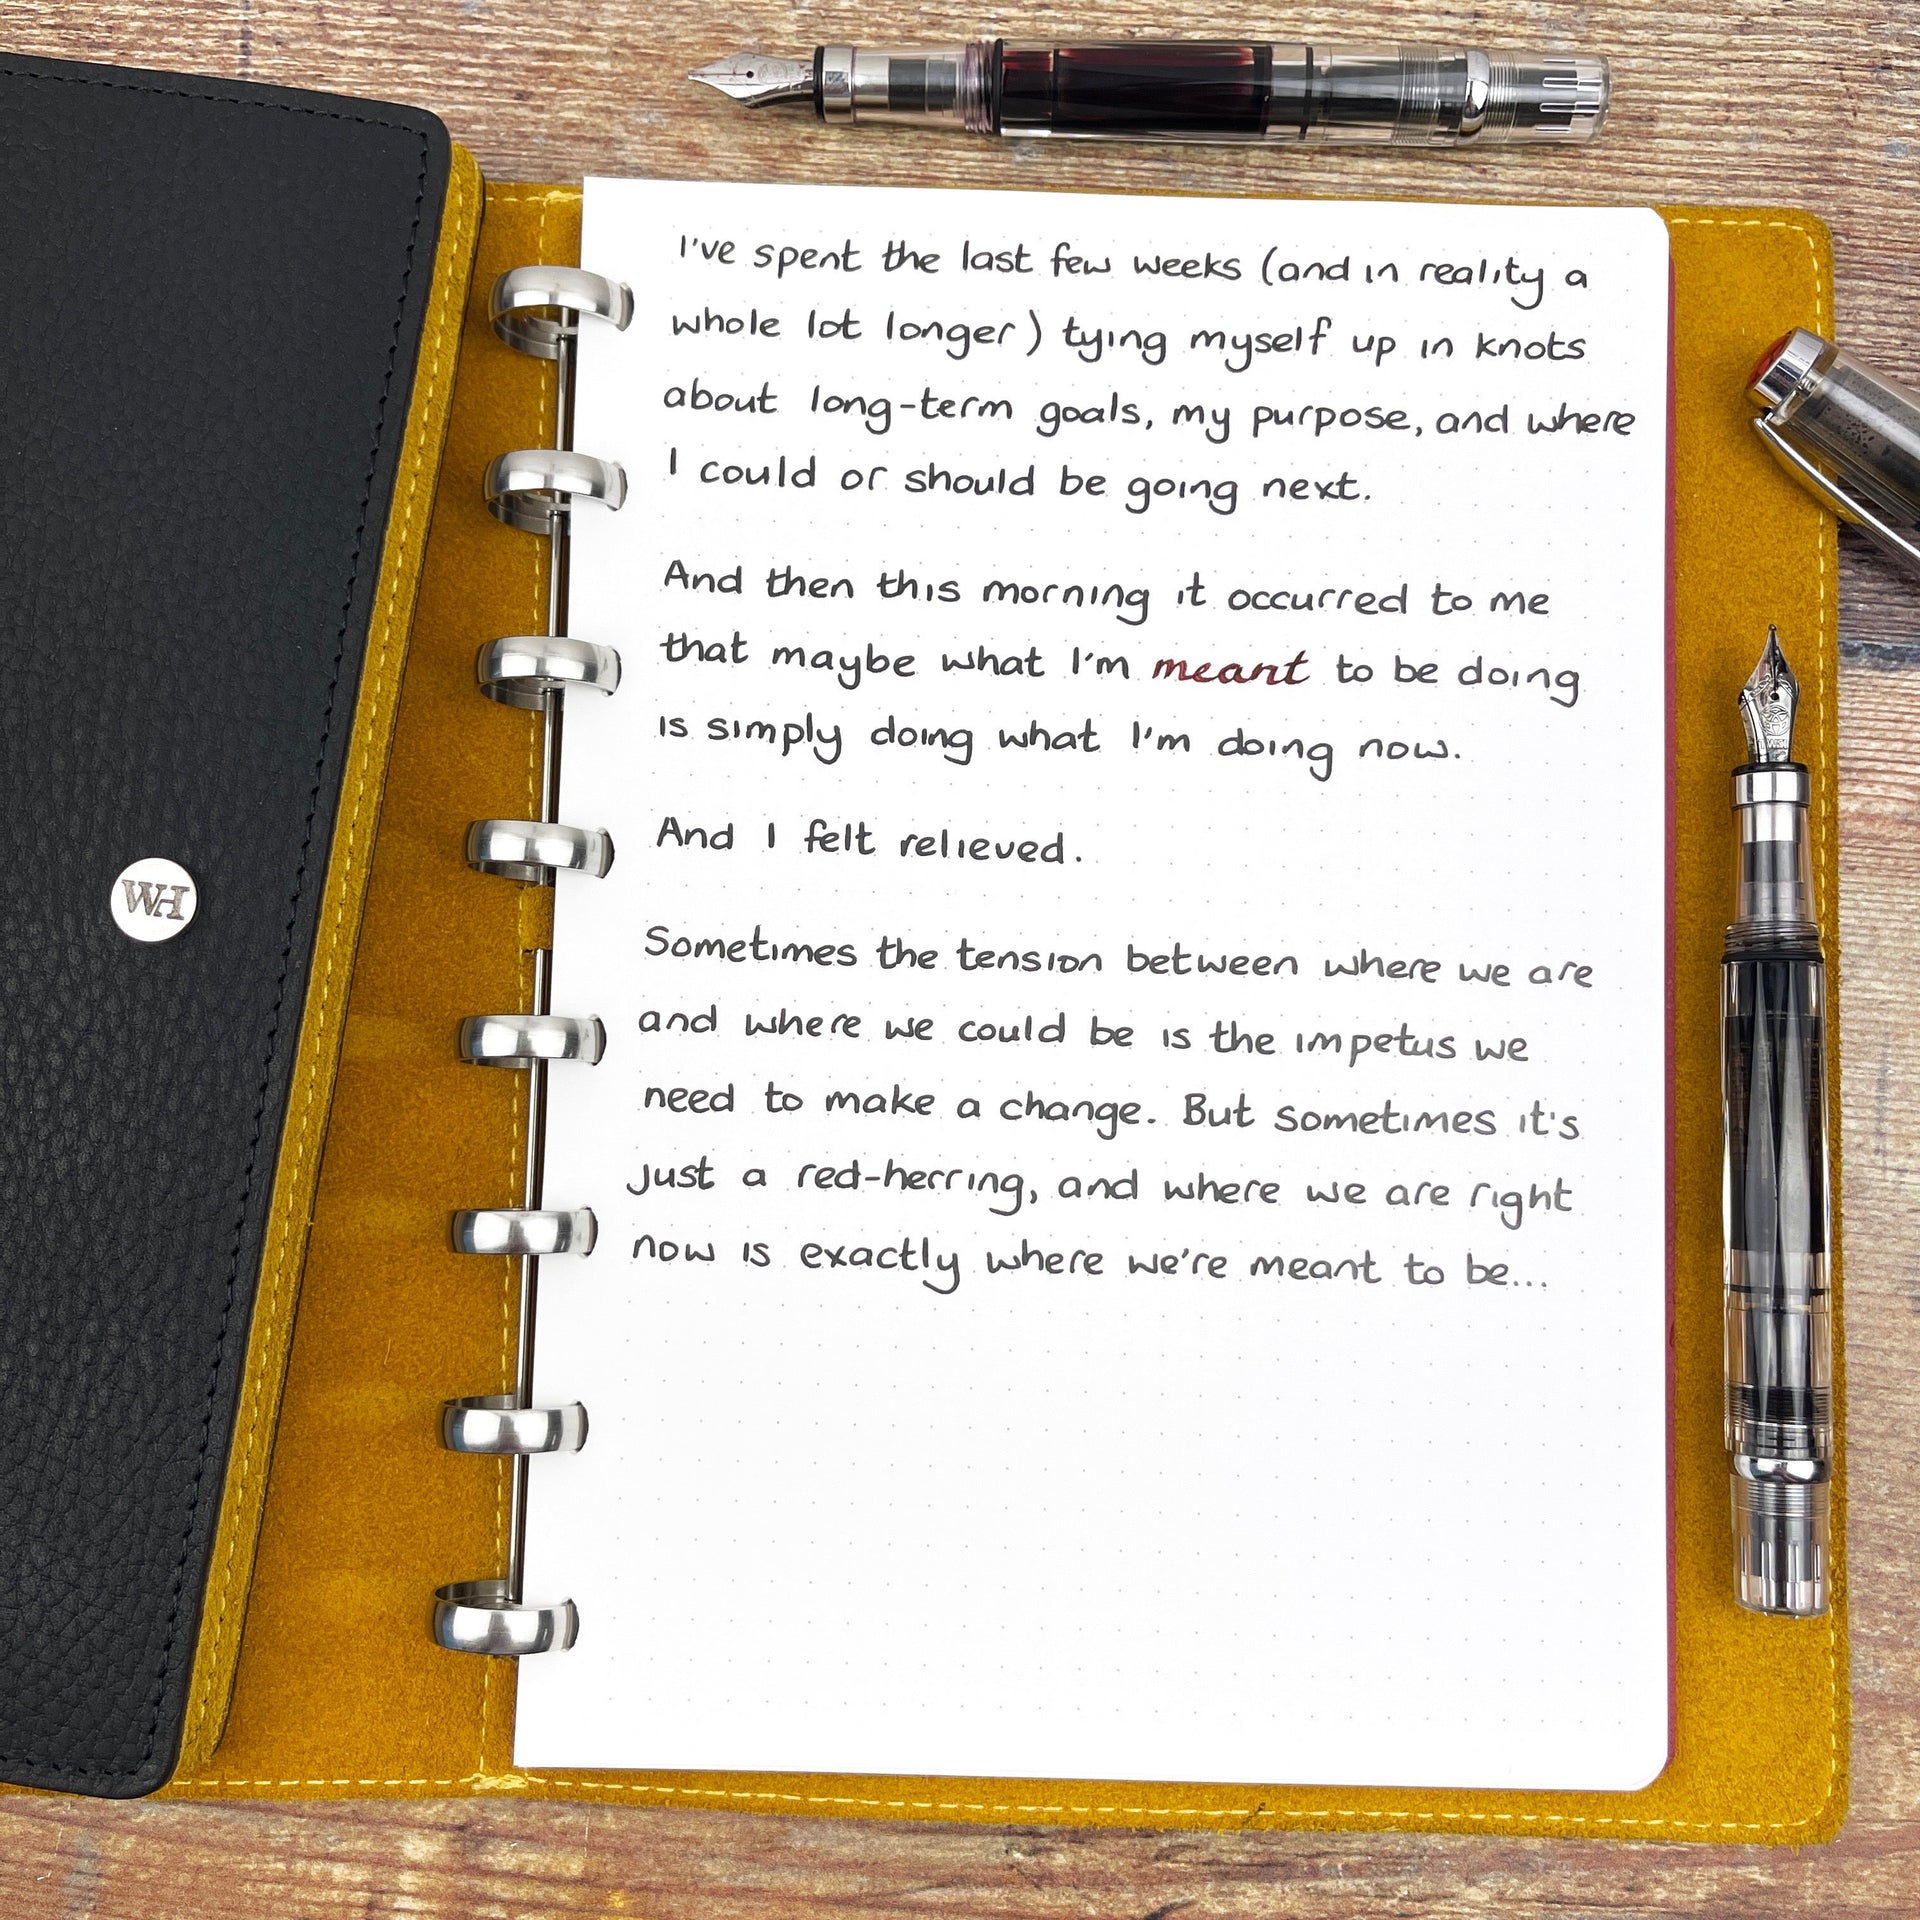 I've spent the last few weeks (and in reality a
whole lot longer) tying myself up in knots
about long-term goals, my purpose, and where
I could or should be going next.
And then this morning it occurred to me
that maybe what I'm meant to be doing
is simply doing what I'm doing now.
And I felt relieved.
Sometimes the tension between where we are
and where we could be is the impetus we
need to make a change. But sometimes it's
just a red-herring, and where we are right
now is exactly where we're meant to be...
WH
TWSBI